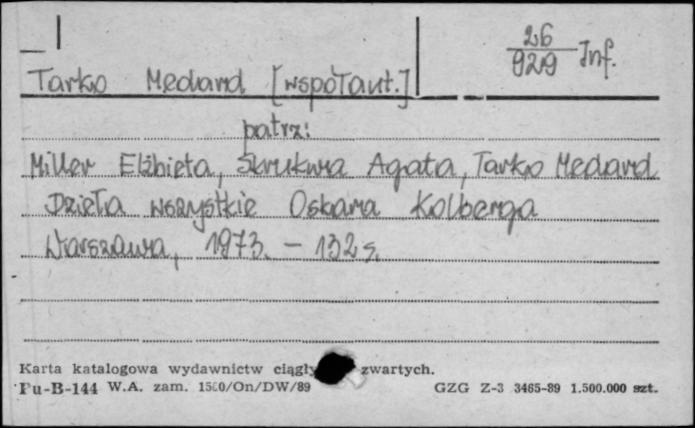 26
929 Inf.
Tarko Medard [współaut.]
patrz:
Miller Elżbieta, Skrukwa Agata, Tarko Medard
Dzieła wszystkie Oskara Kolberga
Warszawa, 1973. – 132 s.
Karta katalogowa wydawnictw ciągły zwartych.
Pu-B-144 W.A. zam. 1560/On/DW/89 GZG Z-3 3465-89 1.500.000 szt.